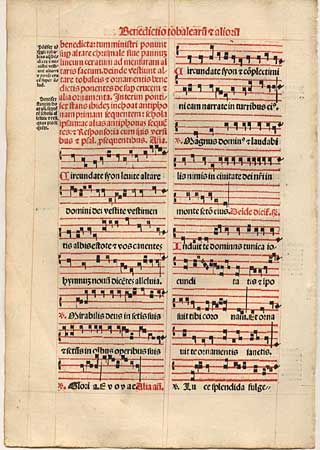 Benedictio tobalearū ⁊ alioꝝ
benedictarum ministri ponunt
sup altare chrismale siue pannū
lineum ceratum ad mensuram
altaris factum. deinde vestiunt altare
tobaleis ⁊ ornamentis bene
dictis ponentes desup crucem ⁊
alia ornamenta. Interim pontifex
stans ibidem inchoat antiphonam
primam sequentem: schola
psequente ⁊ Responsoria cum suis versibus
⁊ psal. psequentibus. Aña.
Circundate syon leuite altare
domini dei vestite vestimen
tis albis estote ⁊ vos canentes
hymnū nouū dicētes alleluia.
v. Mirabilis deus in sctis suis
⁊ sctūs in oībus operibus suis
v. Glori a. E v o v a e Alia añ.
Circundate syon ⁊ cōplectimi
ni eam narrate in turribus ei
v. Magnus dominꝰ ⁊ laudabi
lis nimis in ciuitate dei nr̄i in
monte sctō eius. Deinde dicit̄. ℞.
Induit te dominus tunica io
cundi tatis ⁊ ipo
suit tibi coro nam. Et orna
uit te ornamentis sanctis.
v. Lu ce splendida fulge